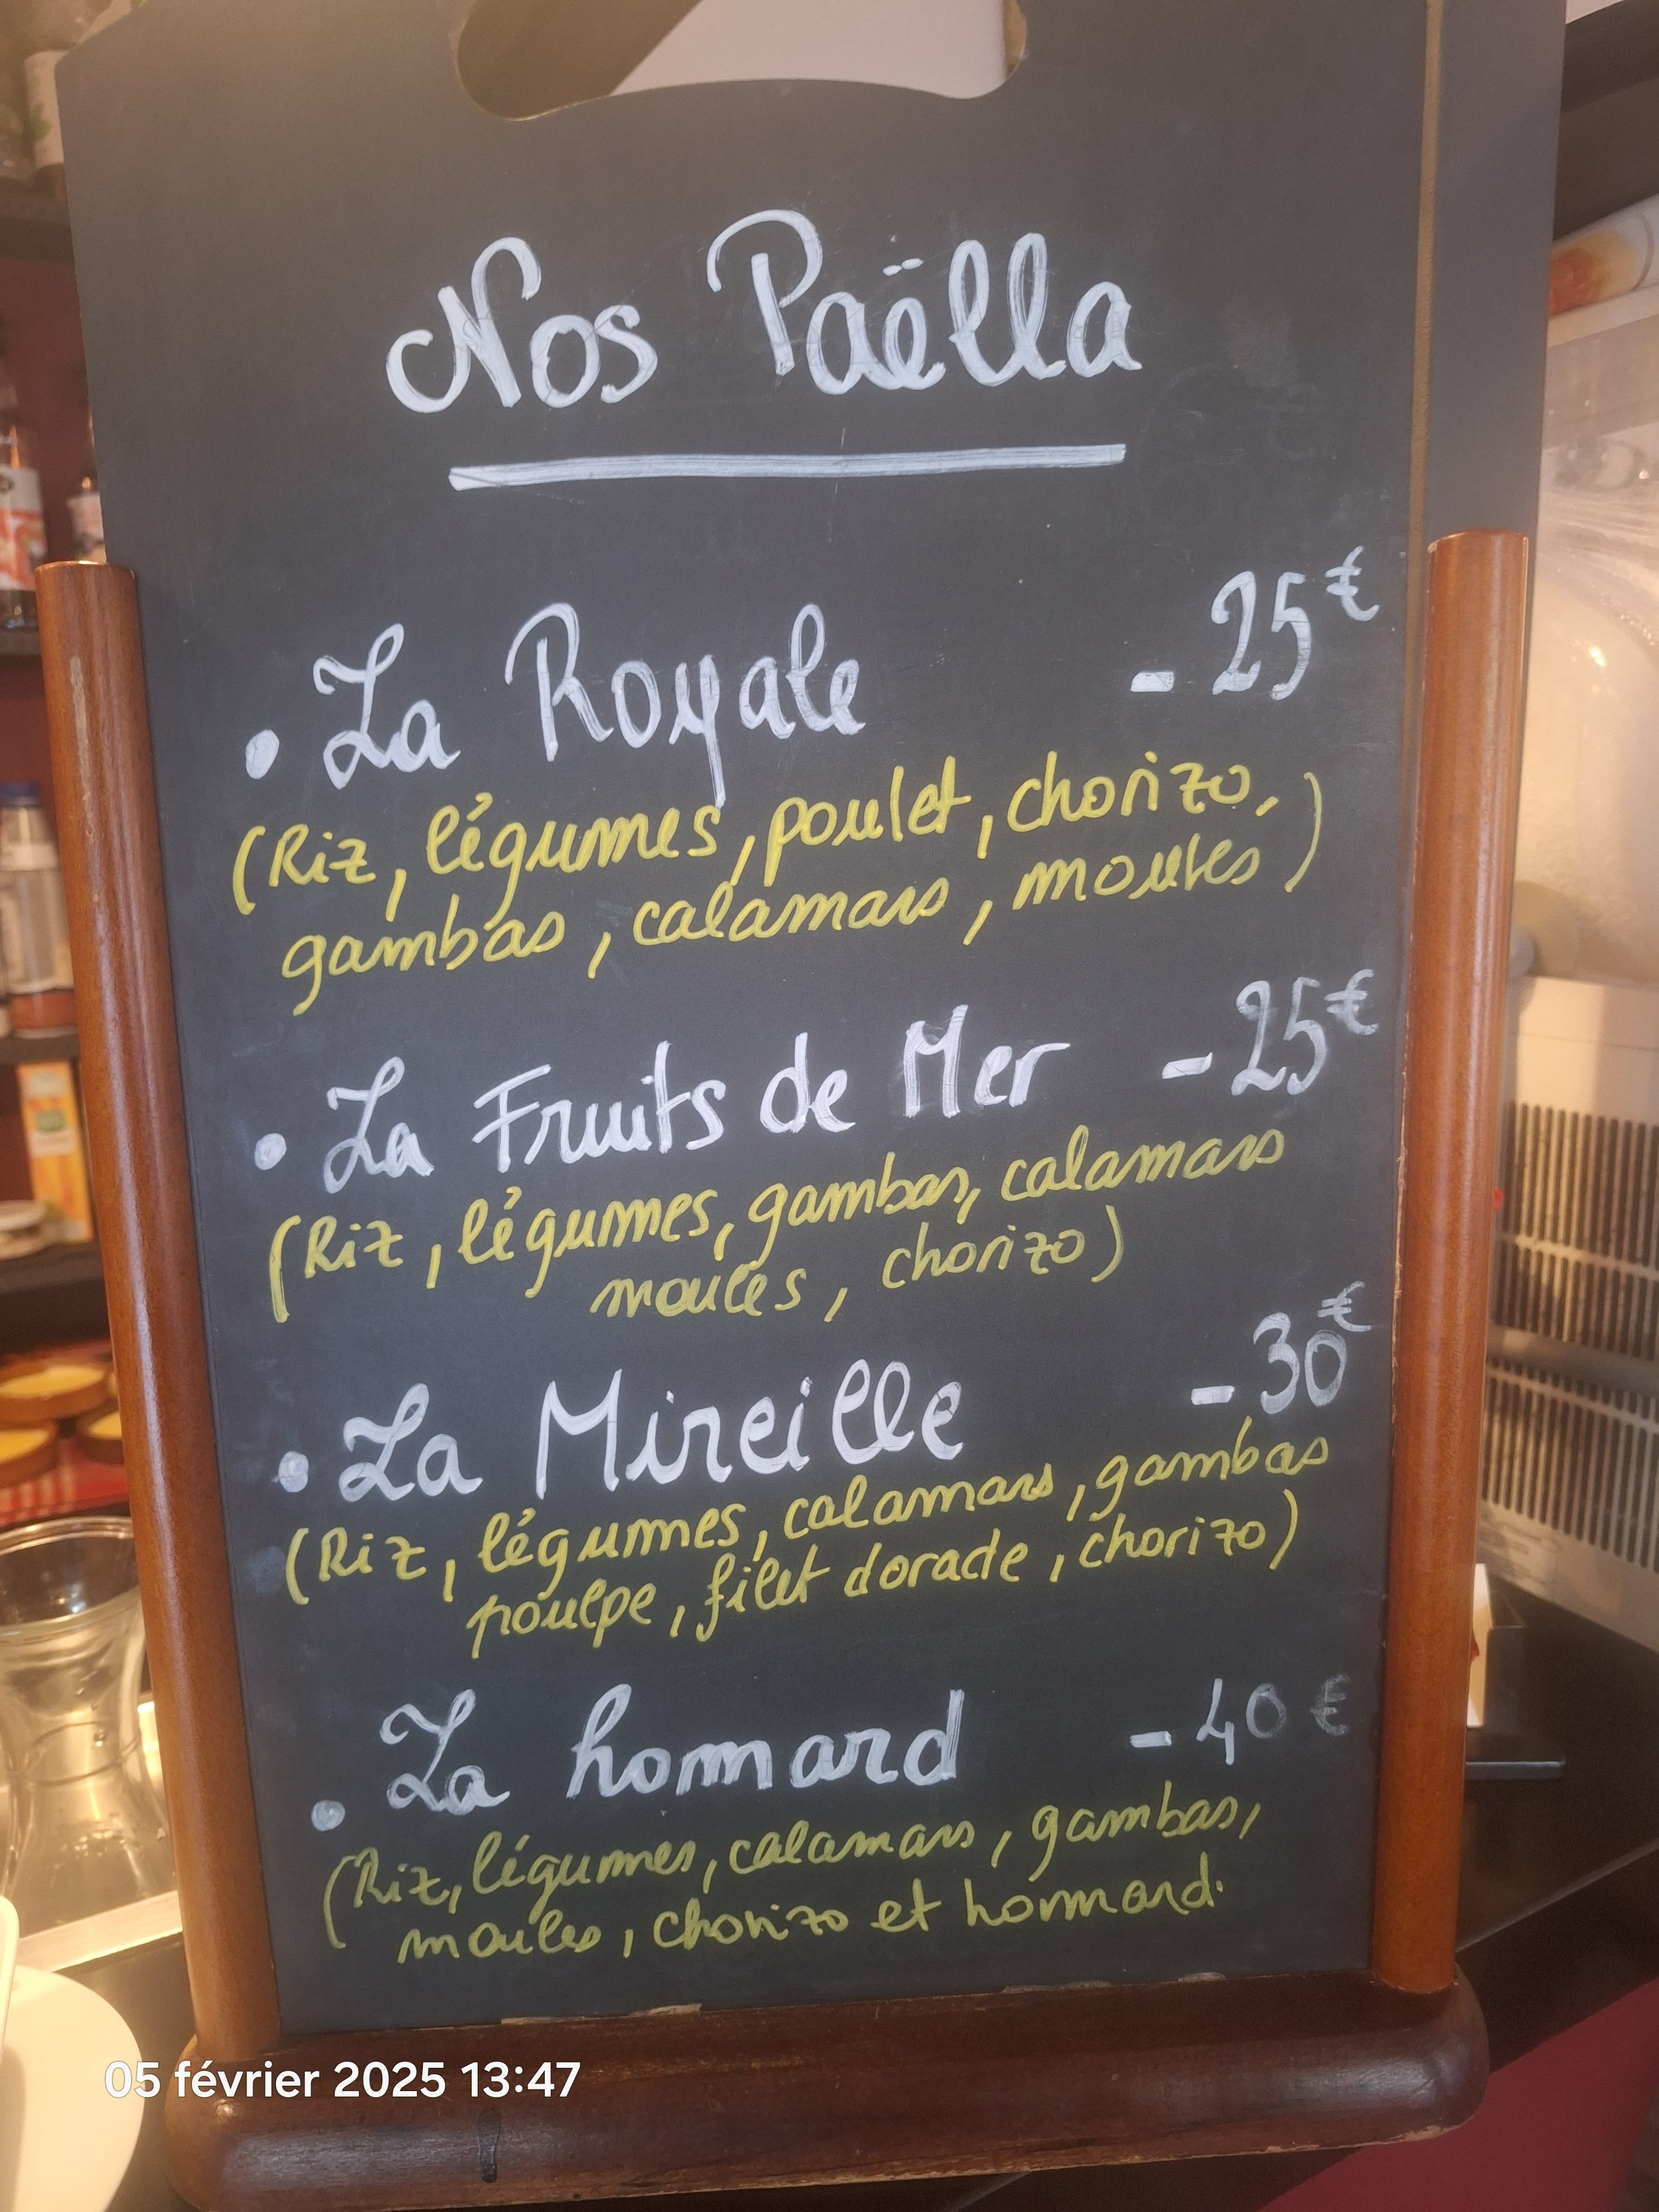 Nos Paëlla
• La Royale - 25€
(Riz, légumes, poulet, chorizo,
gambas, calamars, moules)
• La Fruits de Mer - 25€
(Riz, légumes, gambas, calamars
moules, chorizo)
• La Mireille - 30€
(Riz, légumes, calamars, gambas
poulpe, filet dorade, chorizo)
• La homard - 40 €
(Riz, légumes, calamars, gambas,
moules, chorizo et homard.
05 février 2025 13:47